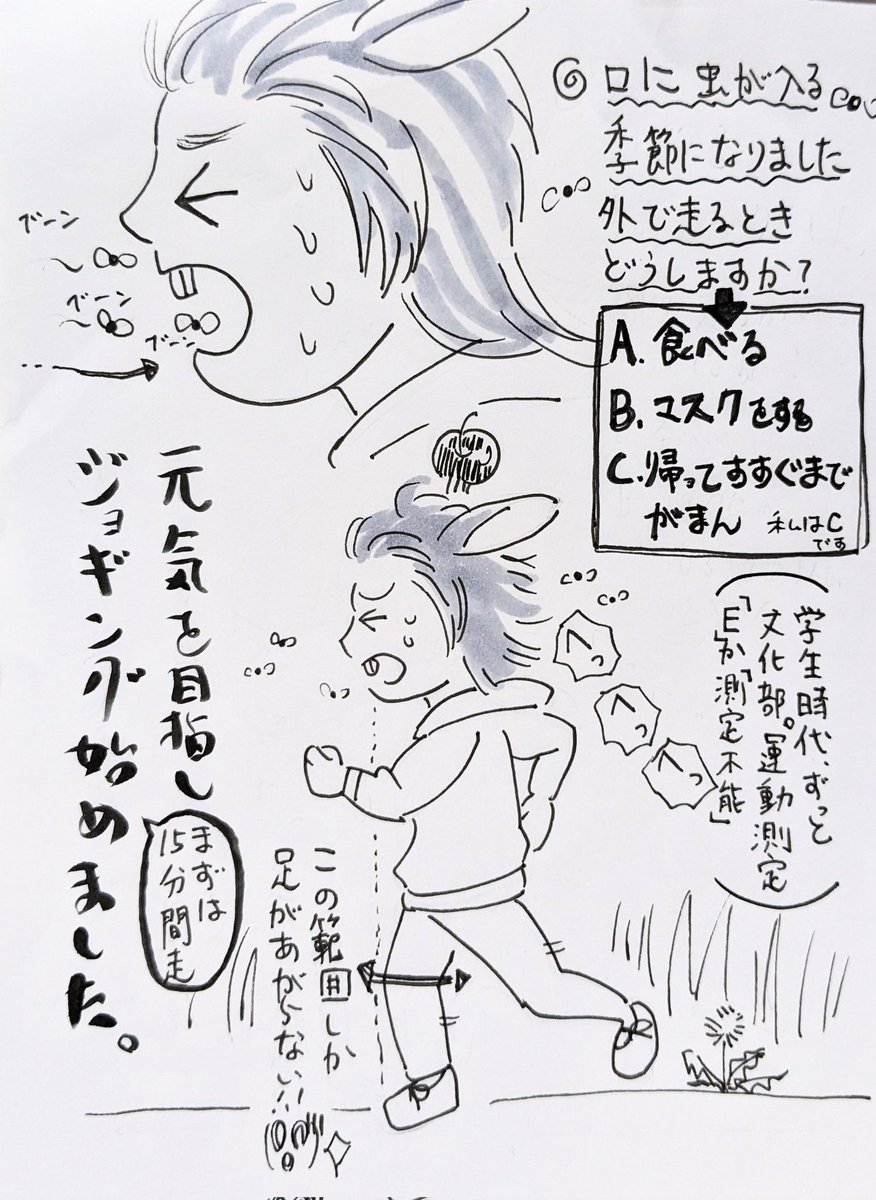 ◎ 口に虫が入る
季節になりました
外で走るとき
どうしますか?
A. 食べる
B. マスクをする
C. 帰ってすすぐまで
がまん 私はC
です
ブーン
ブーン
ブーン
元気を目指し
ジョギング始めました。
まずは
15分間走
へっ
へっ
へっ
学生時代、ずっと
文化部。運動測定
「E」か「測定不能」
この範囲しか
足があがらない!!